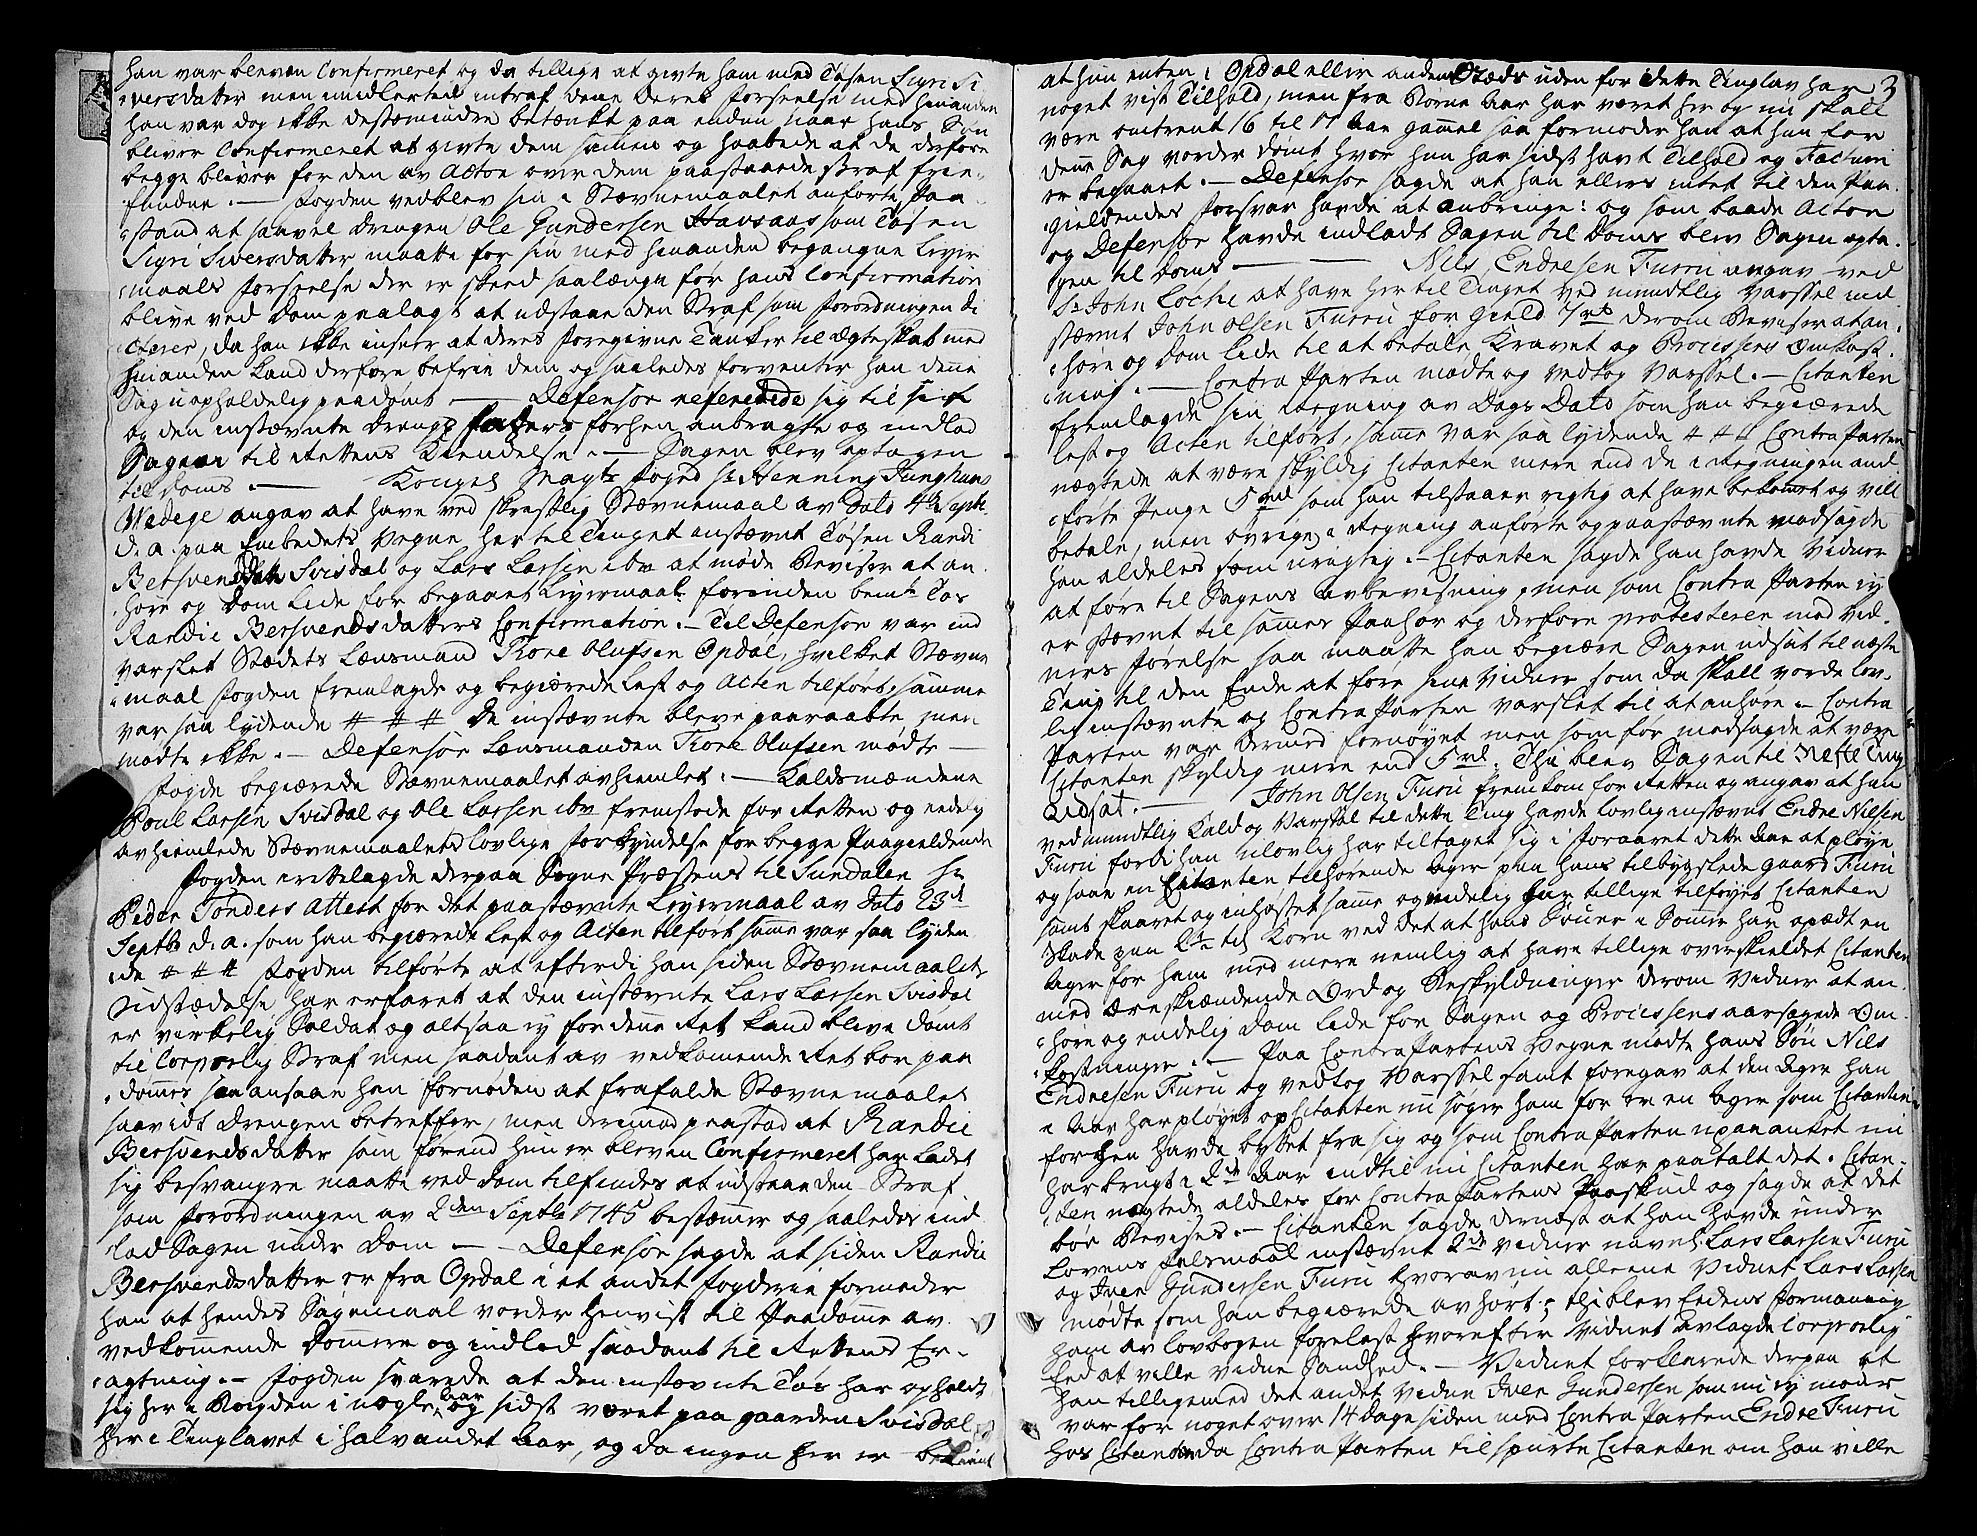 han var bleven Confirmeret og da tillige at givte ham med Tøsen Sigri Si
versdatter men imidlertid intraf denne deres forseelse med hinanden
han var dog ikke destomindre betænkt paa endnu naar hans Søn
bliver Confirmeret at givte dem sammen og haabede at de derfore
begge bliver for den av Actor over dem paastaaede straf frie-
fundne. — Fogden vedblev sin i Stævnemaalet anførte Paa-
stand at saavel drengen Ole Gundersen Havsaas som Tøsen
Sigri Siversdatter maatte for sin med hinanden begangne Leyer
maals forseelse der er skeed saalænge før hans Confirmation
blive ved Dom paalagt at udstaae den Straf som forordningen di
cterer, da han ikke indseer at deres foregivne Tanker til ægteskab med
hinanden kand derfore befrie dem og saaledes forventer han denne
Sag uopholdelig paadømt — Defensor refererede sig til sit
og den instævnte drengs faders forhen anbragte og indlod
Sagen til Rettens Kiendelse. — Sagen blev optagen
til doms. — Kongel Mayts foged Sr Henning Junghans
Wedege angav at have ved skrivtlig Stævnemaal av Dato 4de Septbr
d. a. paa Embedets Vegne her til Tinget instævnt Tøsen Randi
Bersvendsdatter Svisdal og Lars Larsen ibm at møde Beviser at an-
høre og Dom lide for begaaet Leyermaal forinden bemte Tøs
Randie Bersvendsdatters Confirmation. — Til Defensor var ind
varslet Stædets Lænsmand Tore Olufsen Opdal, hvilket Stævne
maal fogden fremlagde og begiærede læst og Acten tilført, samme
var saa lydende # # # De instævnte bleve paaraabte, men
mødte ikke. — Defensor Lænsmanden Tore Olufsen mødte —
Fogde begiærede Stævnemaalet avhiemlet: — Kaldsmændene
Poul Larsen Svisdal og Ole Larsen ibm fremstode for Retten og eedelig
avhiemlede Stævnemaalets lovlige forkyndelse for begge Paagieldende
Fogden irettelagde derpaa Sogne Præstens til Sundalen Hr
Peder Tønders Attest for det paastævnte Leyermaal av Dato 23de
Septbr d. a. som han begiærede læst og Acten tilført samme var saa lyden
de # # # Fogden tilførte at efterdi han siden Stævnemaalets
Udstædelse har erfaret at den instævnte Lars Larsen Svisdal
er virkelig Soldat og altsaa ey for denne Ret kand blive dømt
til Corporlig Straf men saadant av vedkomende Ret bør paa
dømmes saa ansaae han fornøden at frafalde Stævnemaalet
saavidt drengen betreffer, men derimod paastod at Randie
Bersvendsdatter som førend hun er bleven Confirmeret har ladet
sig besvangre maatte ved dom tilfindes at udstaae den Straf
som forordningen av 2den Septbr 1745 bestemmer og saaledes ind
lod Sagen under Dom — Defensor sagde at siden Randie
Bersvendsdatter er fra Opdal i et andet fogderie formeder
han at hendes Søgemaal vorder henvist til Paadømme av
vedkommende Domere og indlod saadant til Rettens Er-
agtning. — Fogden svarede at den instævnte Tøs har opholdt
sig her i Bøigden i nogle aar og sidst været paa gaarden Svisdal
her i Tinglavet i halvandet Aar, og da ingen her er bekiendt
3
at hun enten i Opdal eller anden Stæds uden for dette Tinglav har
noget vist Tilhold, men fra Børne Aar har været her og nu skall
være omtrent 16 til 17 Aar gammel saa formoder han at hun for
denne Sag vorder dømt hvor hun har sidst havt Tilhold og Factum
er begaaet. — Defensor sagde at han ellers intet til den Paa-
gieldendes forsvar havde at anbringe: og som baade Actor
og Defensor havde indladt Sagen til Doms blev Sagen opta-
gen til Doms — Nils Endresen Furu angav ved
Sr John Loche at have her til Tinget ved mundtlig Varssel ind
stævnt John Olsen Furu for Gield 7 rd derom Beviser at an-
høre og Dom lide til at betale Kravet og Processens Omkost-
ning. — Contra Parten mødte og vedtog Varssel. — Citanten
fremlagde sin Regning av Dags Dato som han begiærede
læst og Acten tilført, samme var saa lydende # # # Contra Parten
nægtede at være skyldig Citanten mere end de i Regningen and
førte Penge 5 rd som han tilstaaer rigtig at have bekomet og vill
betale, men øvrige i Regning anførte og paastævnte modsagde
han aldeles som urigtig. — Citanten sagde han havde Vidner
at føre til Sagens avbevisning, men som Contra Parten ey
er stævnt til samme Paahør og derfore protesterer mod Vid-
ners førelse saa maatte han begiære Sagen udsat til næste
Ting til den Ende at føre sine Vidner som da skall vorde lov-
lig instævnte og Contra Parten varslet til at anhøre. — Contra
Parten var dermed fornøyet men som før modsagde at være
Citanten skyldig mere end 5 rd. Thi blev Sagen til Neste Ting
Udsat. — John Olsen Furu fremkom for Retten og angav at han
ved mundtlig Kald og Varssel til dette Ting havde lovlig instævnt Endre Nilsen
Furu fordi han ulovlig har tiltaget sig i foraaret dette Aar at pløye
og saae en Citanten tilhørende Ager paa hans tilbygslede gaard Furu
samt skaaret og indhøstet samme og endelig har tillige tilføyet Citanten
Skade paa Korn ved det at hans Souer i Somer har opædt en
Ager for ham med mere nemlig at have tillige overskieldet Citanten
med ærerskiændende Ord og Beskyldninger derom Vidner at an-
høre og endelig Dom lide for Sagen og Processens aarsagede Om-
kostninger. — Paa Contra Partens Vegne mødte hans Søn Nils
Endresen Furu og vedtog Varssel samt foregav at den Ager han
i Aar har pløyet og Citanten nu søger ham for er en Ager som Citanten
forhen havde byttet fra sig og som Contra Parten upaaanket nu
har brugt i 2de Aar indtil nu Citanten har paatalt det. Citan-
ten nægtede aldeles for Contra Partens Paaskud og sagde at det
bør Bevises. — Citanten sagde dernæst at han havde under
Lovens falsmaal instævnt 2de Vidner navnl. Lars Larsen Furu
og Iver Gundersen Furu hvorav nu alleene Vidnet Lars Larsen
mødte som han begiærede avhørt; thi blev Eedens formaning
ham av lovbogen forelæst hvorefter Vidnet avlagde Corporlig
Eed at ville vidne Sandhed. — Vidnet forklarede derpaa at
han tilligemed det andet Vidne Iver Gundersen som nu ey møder
var for noget over 14 dage siden med Contra Parten Endre Furu
hos Citanten da Contra Parten tilspurte Citanten om han ville